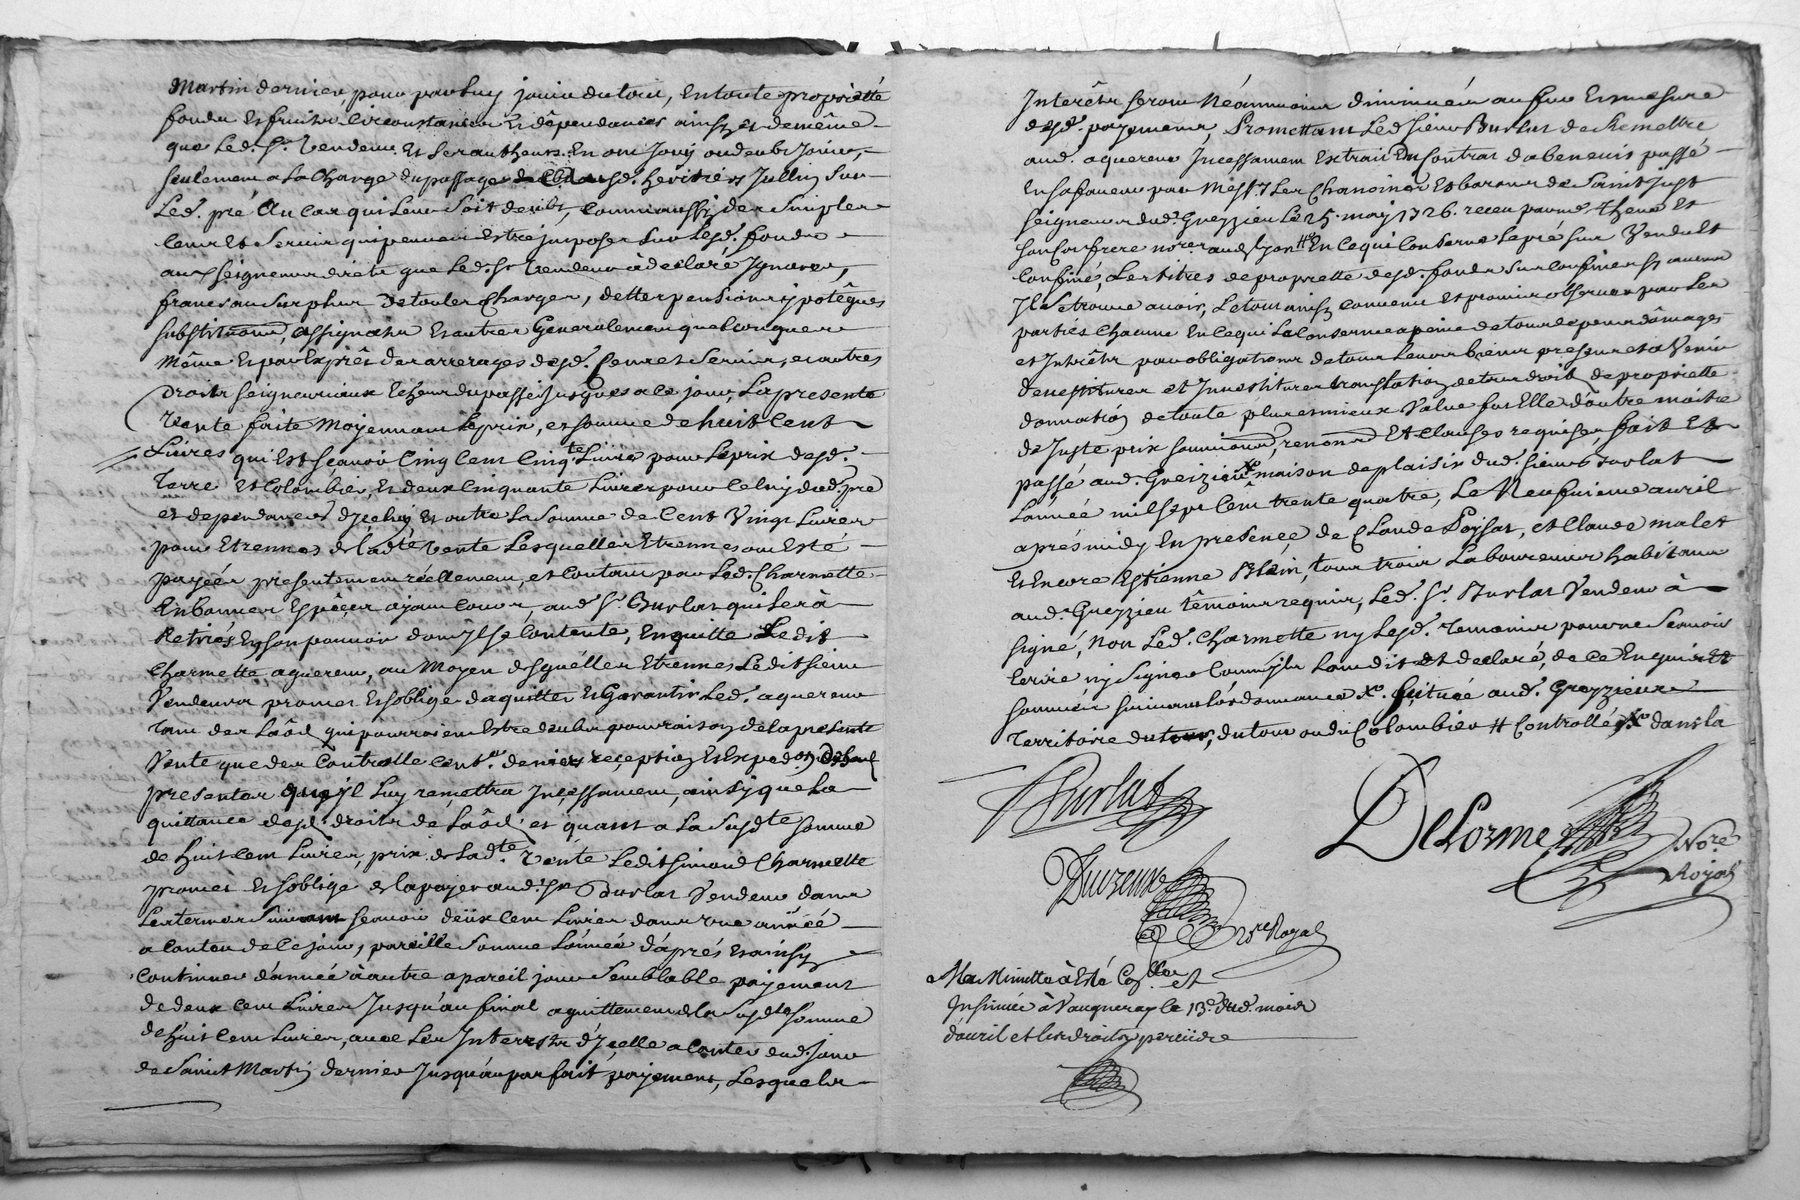 Martin dernier, pour par luy jouir du tout, En toute proprietté
fonds et fruits Circonstances Et dépendances ainsy et de même
que Led. Sr. Vendeur Et ses autheurs En ont Jouy ou deub Jouir,
seulement a La Charge du passage desd. heritiers Jullin sur
Led. pré Au Cas qui Leur Soit deub, Comm'aussy des Simples
Cens Et Servis qui peuvent Estre jmposés Sur Lesd. fonds
aux seigneurs directs que Led. Sr Vendeur à declaré Jgnorer,
francs au Surplus de toutes Charges, dettes pensions ypotêques
substitutions, assignaux Et autres Generalement quelconques
même Et par Exprês des arrerages desd. Cens et Servis, et autres
Droits seigneuriaux Echeus du passé Jusques a ce jour, La presente
Vente faite Moyennant Le prix, et somme de huit Cent
Livres qui Est scavoir Cinq Cent Cinqte Livres pour Le prix desd.
Terre Et Colombier, Et deux Cinquante Livres pour Celuy dud. pré
et dependances d'jceluy Et outre La Somme de Cent Vingt Livres
pour Etrennes de Ladte Vente Lesquelles Etrennes ont Esté
payées presentement réellement, et Contant par Led. Charmette
En bonnes Espêçes ayant Cours, aud. Sr. Burlat qui Les à
Retirés En son pouvoir dont Jl S'e Contente, En quitte Ledit
Charmette aquereur, au Moyen desquelles Etrennes Ledit sieur
Vendeur promet Et s'oblige d'aquitter Et Garantir Led. aquereur
Tant des Laôds qui pourroient Estre deubs pour raison de La presente
Vente que des Controlle Centme deniers reception Et Exped.on
presentes qu'jl Luy remettra Jnçessament, ainsy que La
quittance desd. droits de Laôds et quant a La Susdte Somme
de huit Cent Livres, prix de Ladte. Vente Ledit Simond Charmette
promet Et s'oblige de la payer aud. Sr Burlat Vendeur dans
Les termes Suivant scavoir deux Cent Livres dans une année
a Conter de Ce jour, pareille Somme L'année d'aprés Et ainsy
Continuer d'année à autre a pareil jour Semblable payement
de deux Cent Livres Jusqu'au final aquittement de la Susdte Somme
de huit Cent Livres, avec Les Interests d'Jcelle a Conter dud. jour
de Saint Martin dernier Jusqu'au parfait payement, Lesquels
Interêts seront Néanmoins diminués au fur Et mesure
desd. payements, Promettant Led. Sieur Burlat de Remettre
aud. aquereur Jncessament Extrait du Contrat d'abenevis passé
En sa faveur par Messrs Les Chanoines Et barons de Saint Just
seigneurs dud. Grezieu Le 25. may 1726. receu par me. Et
son Confrere norres aud. Lyon # En Ce qui Conserne Le pré sus Vendu Et
Confiné, Les titres de propriette desd. fonds sus Confinés sy aucuns
Jl Se trouve avoir, Le tout ainsy Convenu Et promis observer par Les
partiés Chacune En Ce qui La Conserne a peine de tous depens dômages
et Intrêts par obligations de tous Leurs biens presens et a Venir
Devestitures et Jnvestitures translation de tous droits de propriette
donnation de toute plus et mieux Value fut Elle d'outre moitié
de Juste prix soumissions, renonons Et Clauses requises, fait Et
passé aud. Greizieu maison de plaisir dud. sieur Burlat
L'année mil sept Cent trente quatre, Le Neufvieme avril
aprés midy En presence de Claude Poysat, et Claude malet
Et Encore Estienne Blein, tous trois Laboureurs habitans
aud. Grezzieu têmoins requis, Led. Sr. Burlat Vendeur à
signé, Non Led. Charmette ny Lesd. Temoins pour ne Scavoir
Ecrire ny Signer Comm'jls L'ont dit Et declaré, de Ce Enquis Et
sommés suivant L'ordonnance Xo. scituée aud. Grezzieu
Territoire du tour, du tour ou du Colombier # Controllé Xo dans la
Burlat
Delorme Nore Royal
Duvzeux nre Royal
Ma Minutte à Esté Collée et
Insinuée à Vaugneray le 13e. dud. mois
d'avril et les droits perçües